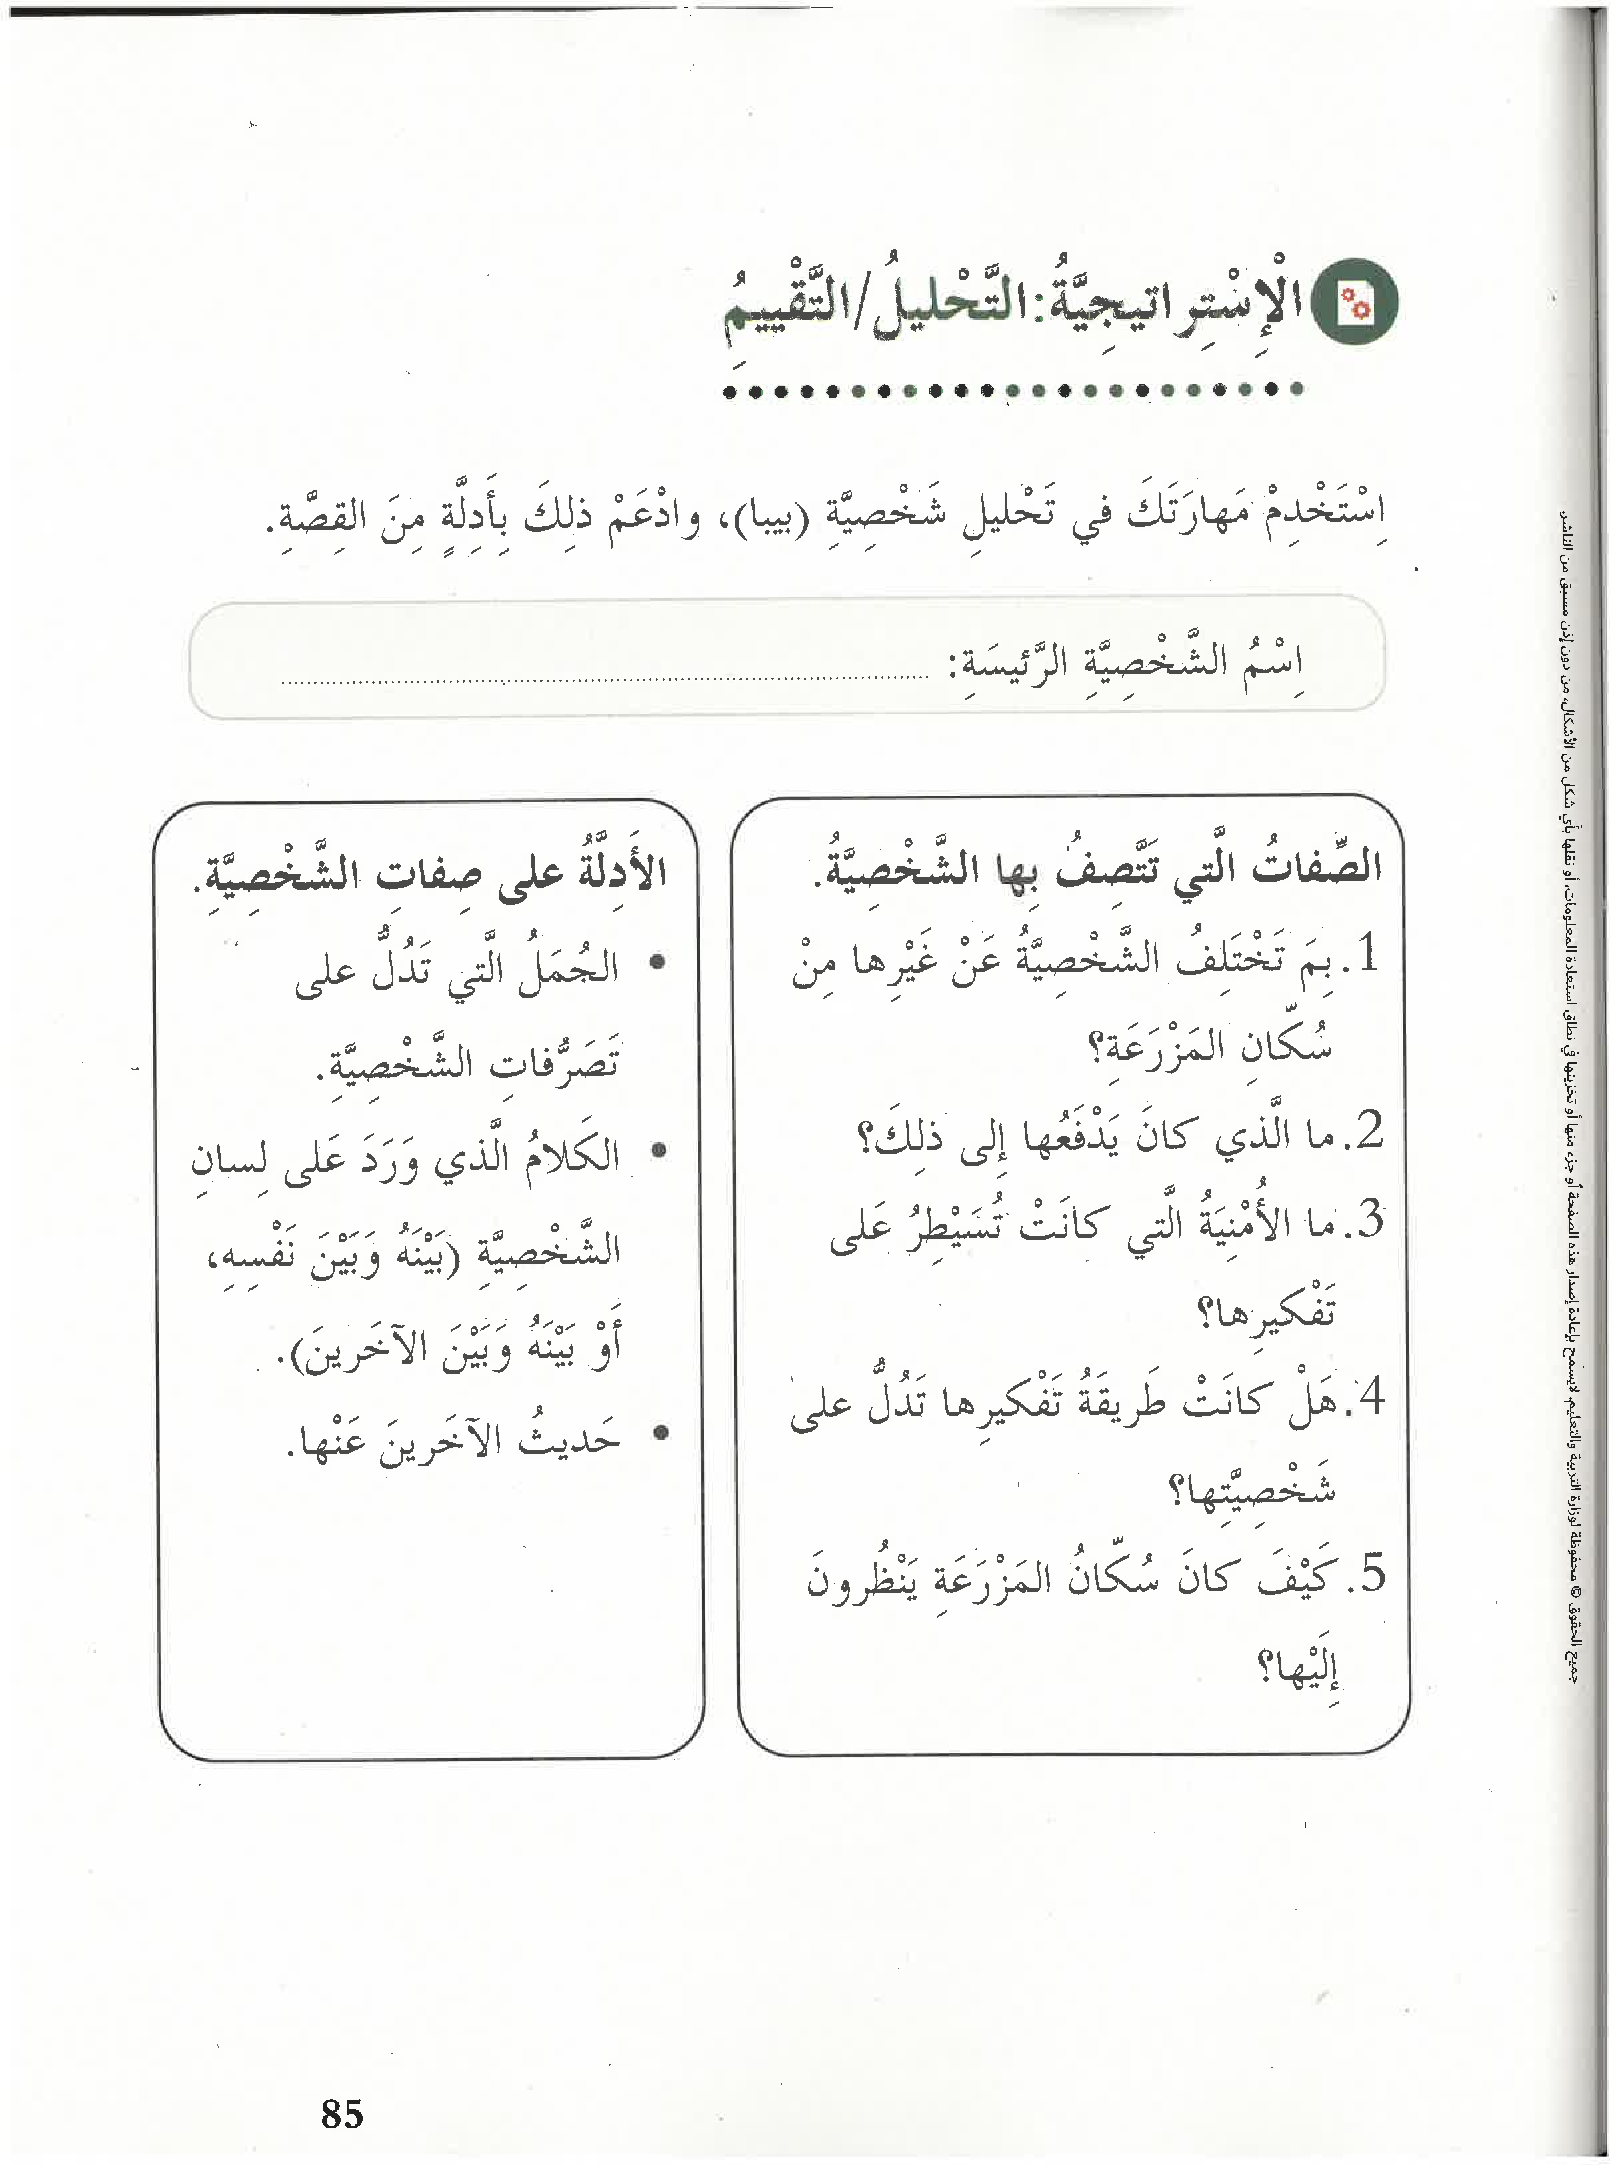 الْإِسْتِراتيجِيَّةُ: التَّحْليلُ/التَّقْييمُ
اِسْتَخْدِمْ مَهارَتَكَ في تَحْليلِ شَخْصِيَّةِ (بيبا)، وادْعَمْ ذلِكَ بِأَدِلَّةٍ مِنَ القِصَّةِ.
اِسْمُ الشَّخْصِيَّةِ الرَّئيسَةِ:
الصِّفاتُ الَّتي تَتَّصِفُ بِها الشَّخْصِيَّةُ.
1. بِمَ تَخْتَلِفُ الشَّخْصِيَّةُ عَنْ غَيْرِها مِنْ
سُكّانِ المَزْرَعَةِ؟
2. ما الَّذي كانَ يَدْفَعُها إِلى ذلِكَ؟
3. ما الأُمْنِيَةُ الَّتي كانَتْ تُسَيْطِرُ عَلى
تَفْكيرِها؟
4. هَلْ كانَتْ طَريقَةُ تَفْكيرِها تَدُلُّ على
شَخْصِيَّتِها؟
5. كَيْفَ كانَ سُكّانُ المَزْرَعَةِ يَنْظُرونَ
إِلَيْها؟
الأَدِلَّةُ على صِفاتِ الشَّخْصِيَّةِ.
• الجُمَلُ الَّتي تَدُلُّ على
تَصَرُّفاتِ الشَّخْصِيَّةِ.
• الكَلامُ الَّذي وَرَدَ عَلى لِسانِ
الشَّخْصِيَّةِ (بَيْنَهُ وَبَيْنَ نَفْسِهِ،
أَوْ بَيْنَهُ وَبَيْنَ الآخَرينَ).
• حَديثُ الآخَرينَ عَنْها.
جميع الحقوق © محفوظة لوزارة التربية والتعليم. لايسمح بإعادة إصدار هذه الصفحة أو جزء منها أو تخزينها في نطاق استعادة المعلومات، أو نقلها بأي شكل من الأشكال، من دون إذن مسبق من الناشر.
85